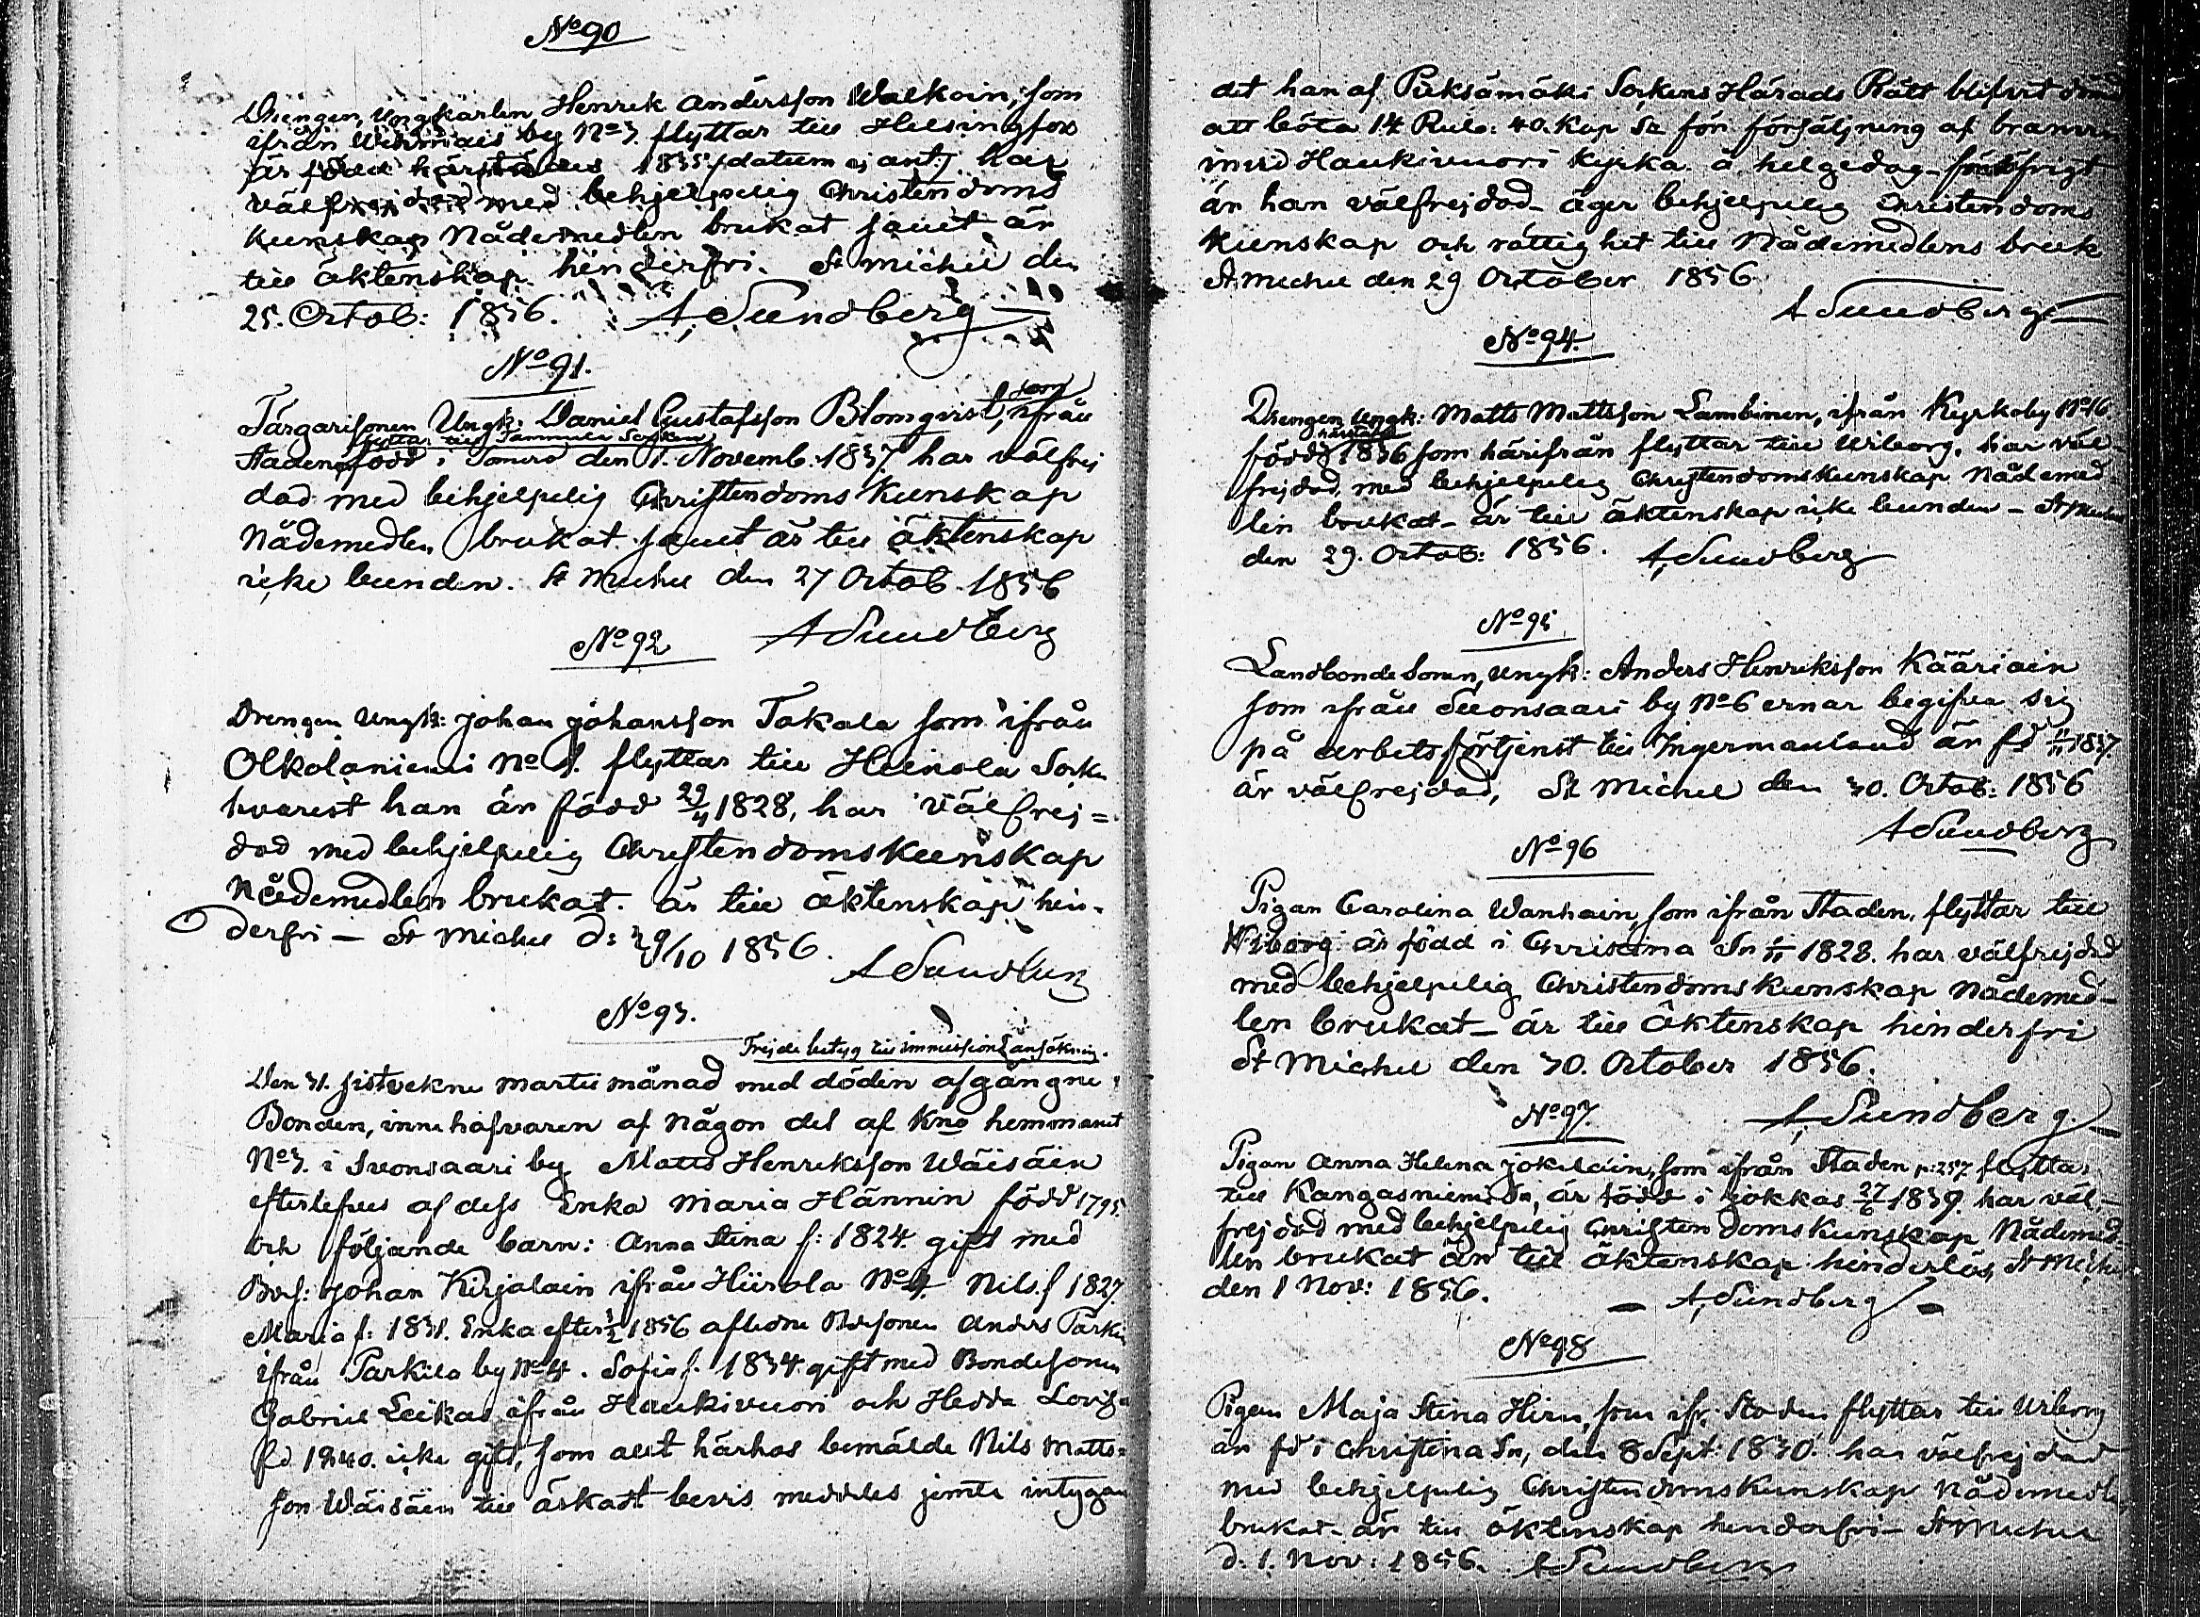 No 90
Drengen, Ungkarlen Henrik Andersson Walkoin, som
ifrån by No 3. flyttar till Helsingfors
är född härstädes 1835 /datum ej ant:/ har
välfrejdad med behjelpelig Christendoms
Kunskap Nådemedlen brukat samt är
till äktenskap hinderfri. St Michel den
25. Octob: 1856. A, Sundberg
No 91.
Färgarisonen Ungk: Daniel Gustafsson Blomqvist, som ifrån
flyttar till Sorken
Staden, född i den 1. Novemb. 1837 har välfrej
dad med behjelpelig Christendoms Kunskap
Nådemedlen brukat samt är till äktenskap
icke bunden. St Michel den 27 Octob 1856
A Sundberg
No 92
Drengen Ungk: Johan Johansson Takala som ifrån
Olkolaniemi No 1. flyttar till Heinola Sorken
hvarest han är född 29/4 1828, har välfrej=
dad med behjelpelig Christendomskunskap
Nådemedlen brukat. är till äktenskap hin-
derfri — St Michel d: 29/10 1856.
A Sundberg
No 93.
Frejde betyg till immissions ansökning.
Den 31. sistvekne martii månad med döden afgångne
Bonden, innehafvaren af någon del af Kno hemmanet
No 3. i Svonsaari by Matts Henriksson Wäisäin
efterlefves af dess Enka Maria Hännin född 1795.
och följande barn: Anna Stina f: 1824. gift med
Bos: Johan Kirjalain ifrån Hiirola No 4. Nils f 1827.
Maria f: 1831. Enka efter 1/2 1856 aflidne Bdesonen Anders Parkin
ifrån Parkila by No 4. Sofia f. 1834 gift med Bondesonen
Gabriel Leikas ifrån Haukivuori och Hedda Lovisa
fd 1840. icke gift, som allt härhos bemälde Nils Matts=
son Wäisäin till äskadt bevis meddeles jemte intygan
det han af Pieksämäki Sockens Härads Rätt blifvit dömd
att böta 14 Rub: 40. Kop Sr för försäljning af bränvin
invid Haukivuori Kyrka å helgedag - för öfrigt
är han välfrejdad - äger behjelpelig Christendoms
Kunskap och rättighet till Nådemedlens bruk
St Michel den 29 October 1856
A Sundberg
No 94.
Drengen Ungk: Matts Mattsson Lambinen, ifrån Kyrkoby No 16
härstädes
född 1836 som härifrån flyttar till Wiborg, har väl-
frejdad, med behjelpelig Christendomskunskap Nådemed
len brukat - är till äktenskap icke bunden - St Michel
den 29. Octob: 1856. A, Sundberg
No 95
Landbonde Sonen, Ungk: Anders Henriksson Kääriain
som ifrån Suonsaari by No 6 ernar begifva sig
på arbetsförtjenst till Ingermanland är fd 1837.
är välfrejdad, St Michel den 30. Octob: 1856
A Sundberg
No 96
Pigan Carolina Wanhain, som ifrån Staden, flyttar till
Wiborg är född i Christina Sn 1828. har välfrejdad
med behjelpelig Christendoms kunskap Nådemed-
len brukat - är till äktenskap hinderfri
St Michel den 30. October 1856.
No 97. A, Sundberg.
Pigan Anna Helena Jokilain, som ifrån Staden p: 257 flyttar
till Kangasniemi Sn, är född i Jokkas 27/6 1839. har väl-
frejdad med behjelpelig Christendoms Kunskap Nådemed-
len brukat är till äktenskap hinderlös, St Michel
den 1 Nov: 1856. — A, Sundberg —
No 98
Pigan Maja Stina Hirn, som ifr: Staden flyttar till Wiborg
är fd i Christina Sn, den 8 Sept: 1830. har välfrejdad
med behjelpelig Christendomskunskap Nådemedlen
brukat - är till äktenskap hinderfri - St Michel
d. 1. Nov: 1856. A Sundberg